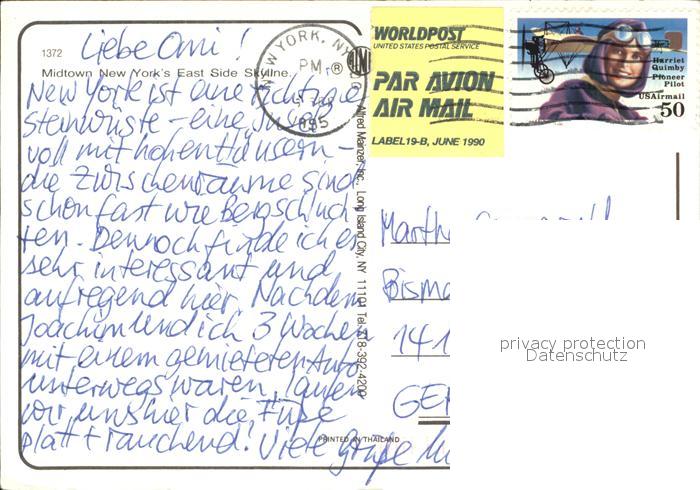 1372
Liebe Omi!
Midtown New York's East Side Skyline.
New York ist eine richtige
Steinwüste – eine Insel
voll mit hohen Häusern –
die Zwischenräume sind
schon fast wie Bergschluch-
ten. Dennoch finde ich es
sehr interessant und
aufregend hier. Nachdem
Joachim und ich 3 Wochen
mit einem gemieteten Auto
unterwegs waren, laufen
wir uns hier die Füße
platt + rauchend! Viele
Grüße
PRINTED IN THAILAND
Alfred Mainzer, Inc., Long Island City, NY 11101 Tel. 718-392-4200
NEW YORK, NY
PM
1995
WORLDPOST
UNITED STATES POSTAL SERVICE
PAR AVION
AIR MAIL
LABEL 19-B, JUNE 1990
Harriet
Quimby
Pioneer
Pilot
USAirmail
50
Martha
Bisma
141
GER
privacy protection
Datenschutz